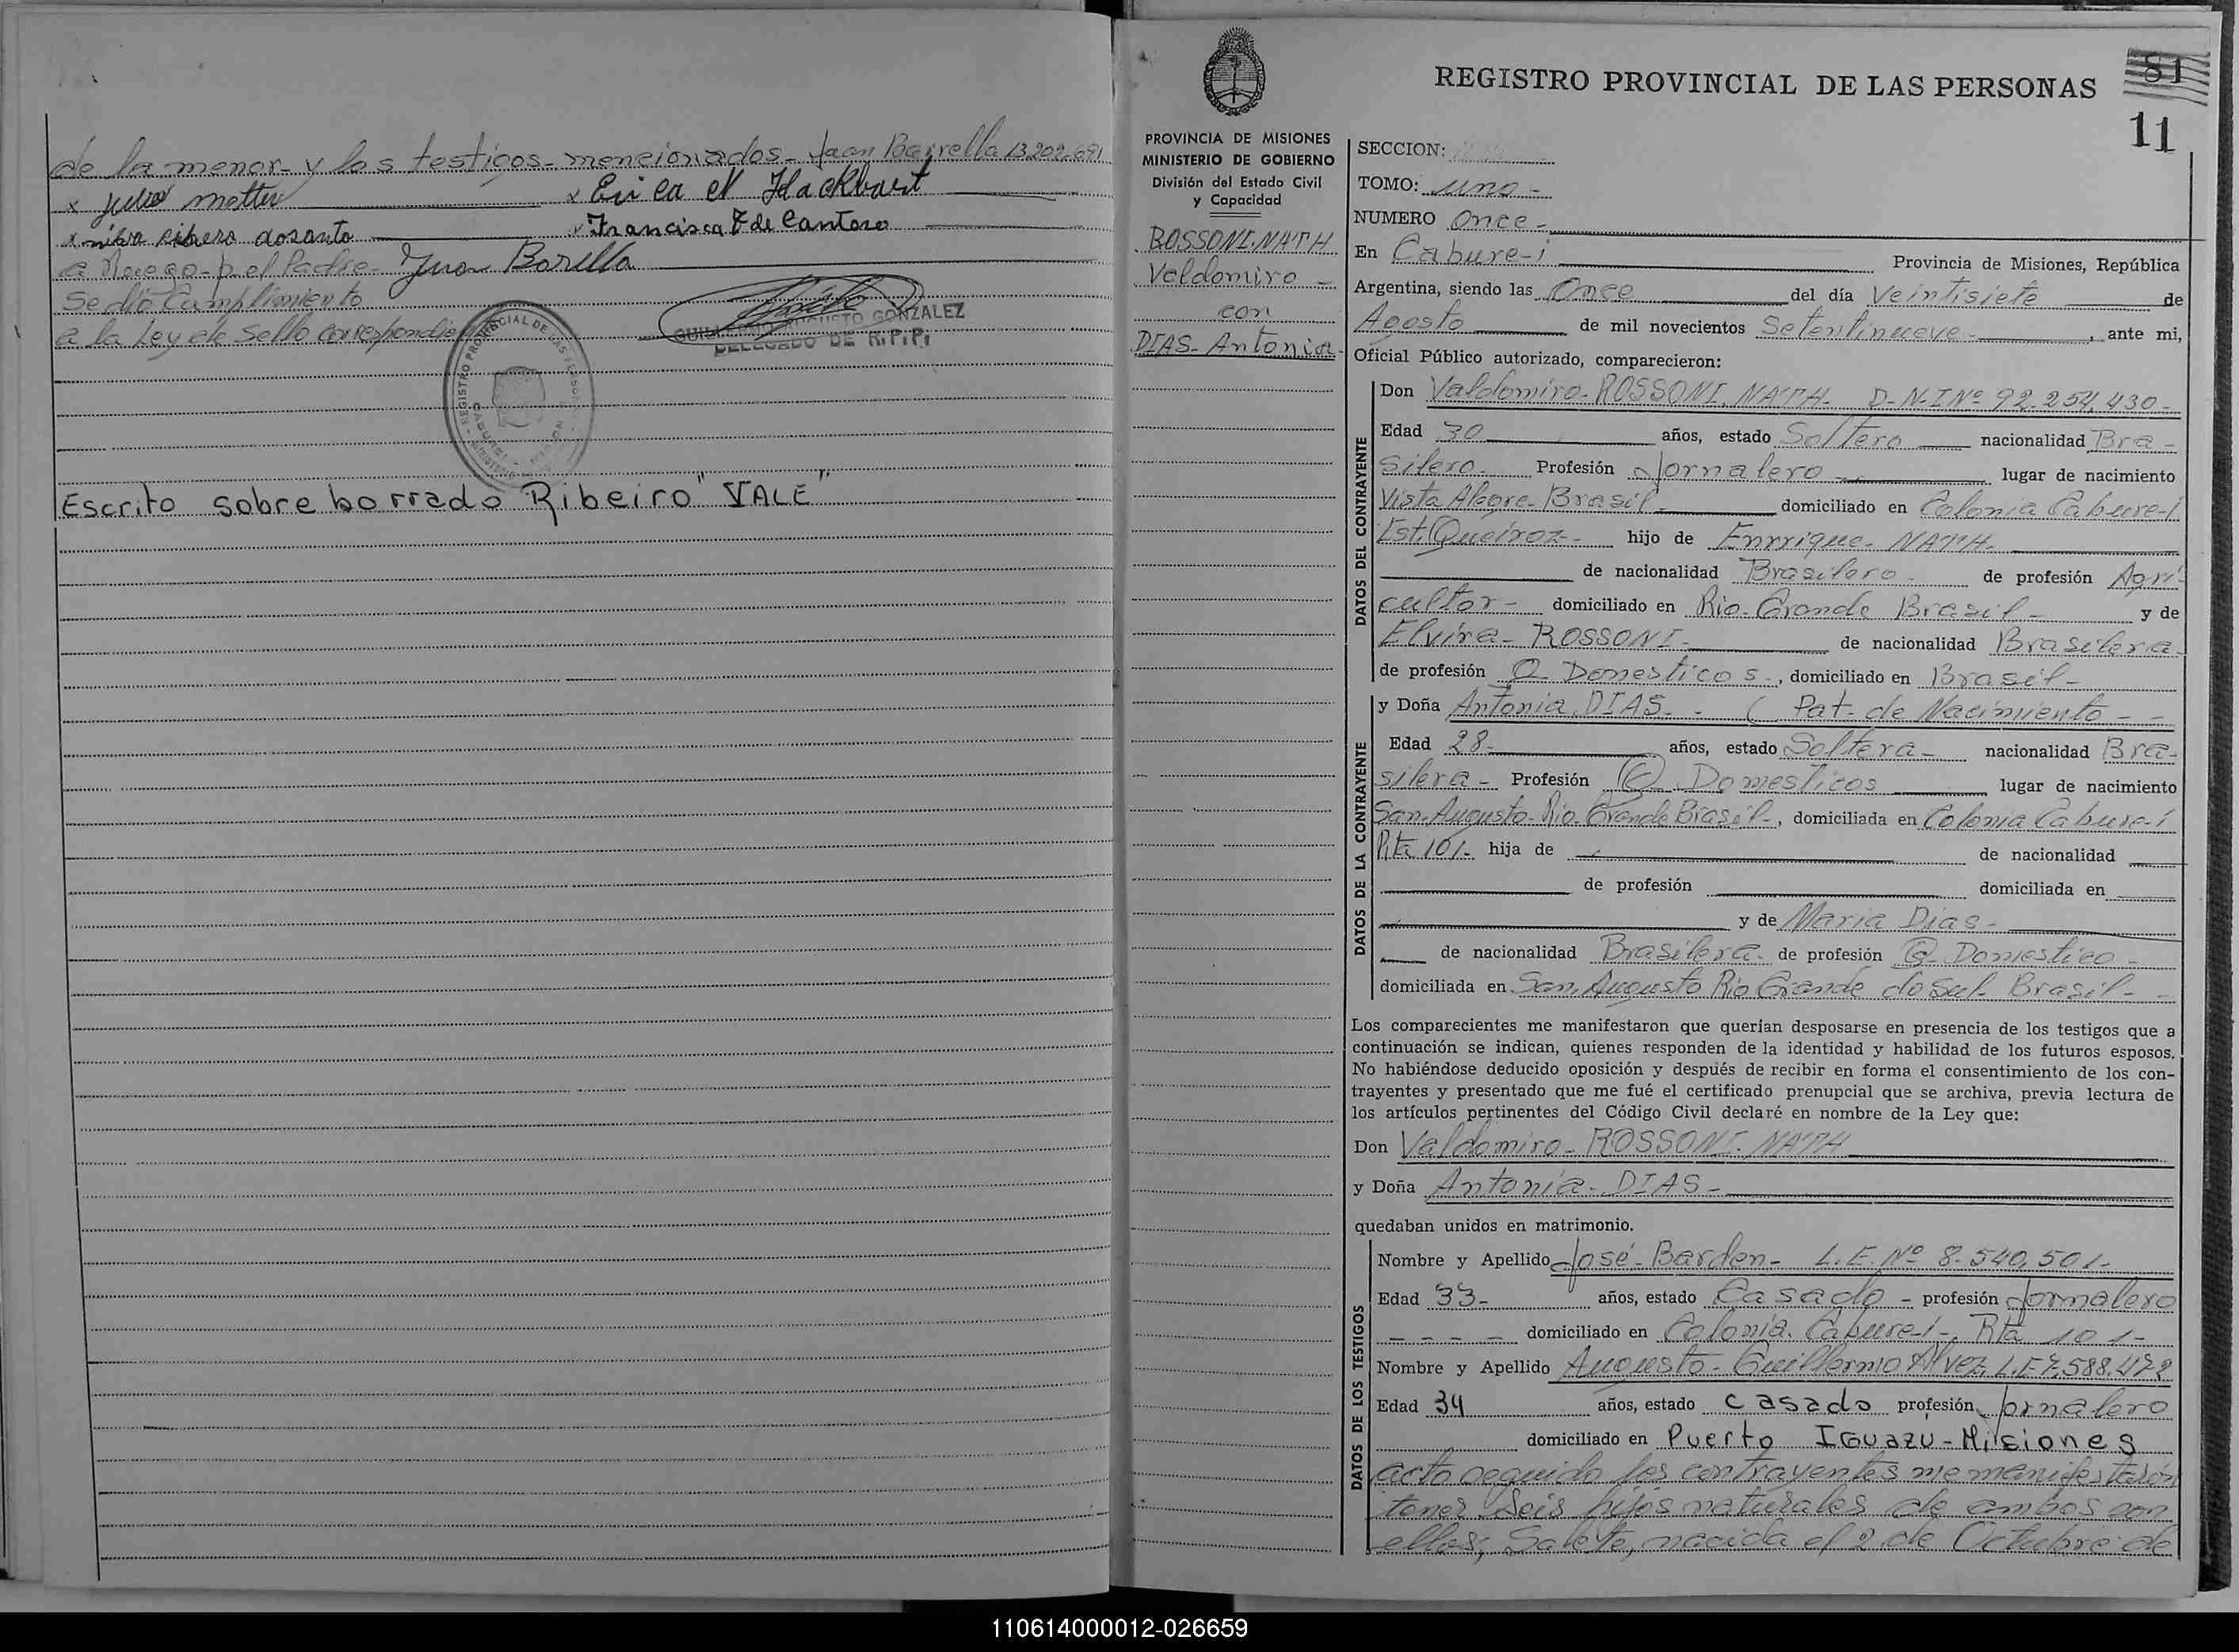 de la menor- y los testigos- mencionados- Juan Barrella 13.202.691
x julio metter x Erica N Hackbart
x nilva ribero dosanto x Francisca F de Cantero
a Ruego- p el Padre- Juan Barella
Se dio Cumplimiento
a la Ley de Sello Correspondie
GUILLERMO AUGUSTO GONZALEZ
DELEGADO DE R.P.P.
REGISTRO PROVINCIAL DE LAS PERSONAS
Escrito sobre borrado Ribeiro" VALE"
REGISTRO PROVINCIAL DE LAS PERSONAS
81
11
PROVINCIA DE MISIONES
MINISTERIO DE GOBIERNO
División del Estado Civil
y Capacidad
ROSSONI.NATH
Valdomiro -
con
DIAS- Antonia-
SECCION:
TOMO: uno -
NUMERO Once -
En Cabure-i Provincia de Misiones, República
Argentina, siendo las Once del día Veintisiete de
Agosto de mil novecientos Setentinueve- , ante mi,
Oficial Público autorizado, comparecieron:
DATOS DEL CONTRAYENTE
Don Valdomiro- ROSSONI. NATH- D-N-I Nº 92.254.430-
Edad 30 años, estado Soltero nacionalidad Bra-
silero- Profesión Jornalero lugar de nacimiento
Vista Alegre- Brasil- domiciliado en Colonia Cabure-i
Est. Queiroz- hijo de Enrrique- NATH-
de nacionalidad Brasilero- de profesión Agri-
cultor- domiciliado en Rio- Grande Brasil- y de
Elvira- ROSSONI- de nacionalidad Brasilera-
de profesión Q. Domesticos-, domiciliado en Brasil-
DATOS DE LA CONTRAYENTE
y Doña Antonia DIAS- - ( Pat- de Nacimiento - -
Edad 28- años, estado Soltera- nacionalidad Bra-
silera- Profesión Q. Domesticos lugar de nacimiento
San. Augusto- Rio- Grande Brasil-, domiciliada en Colonia Cabure-i
Rta 101- hija de de nacionalidad
de profesión domiciliada en
y de Maria Dias-
de nacionalidad Brasilera- de profesión Q- Domestico-
domiciliada en San. Augusto Rio Grande do Sul- Brasil- -
Los comparecientes me manifestaron que querían desposarse en presencia de los testigos que a
continuación se indican, quienes responden de la identidad y habilidad de los futuros esposos.
No habiéndose deducido oposición y después de recibir en forma el consentimiento de los con-
trayentes y presentado que me fué el certificado prenupcial que se archiva, previa lectura de
los artículos pertinentes del Código Civil declaré en nombre de la Ley que:
Don Valdomiro- ROSSONI. NATH
y Doña Antonia- DIAS-
quedaban unidos en matrimonio.
DATOS DE LOS TESTIGOS
Nombre y Apellido José- Barden- L.E. Nº 8.540.501-
Edad 33- años, estado Casado - profesión Jornalero
- - - - domiciliado en Colonia. Cabure-i-, Rta 101-
Nombre y Apellido Augusto- Guillermo Alvez. L.E 7.588.472
Edad 34 años, estado Casado profesión Jornalero
domiciliado en Puerto Iguazu - Misiones
acto seguido los contrayentes me manifestarón
tener seis hijos naturales de ambos son
ellos; Salete, nacida el 2 de Octubre de
110614000012-026659